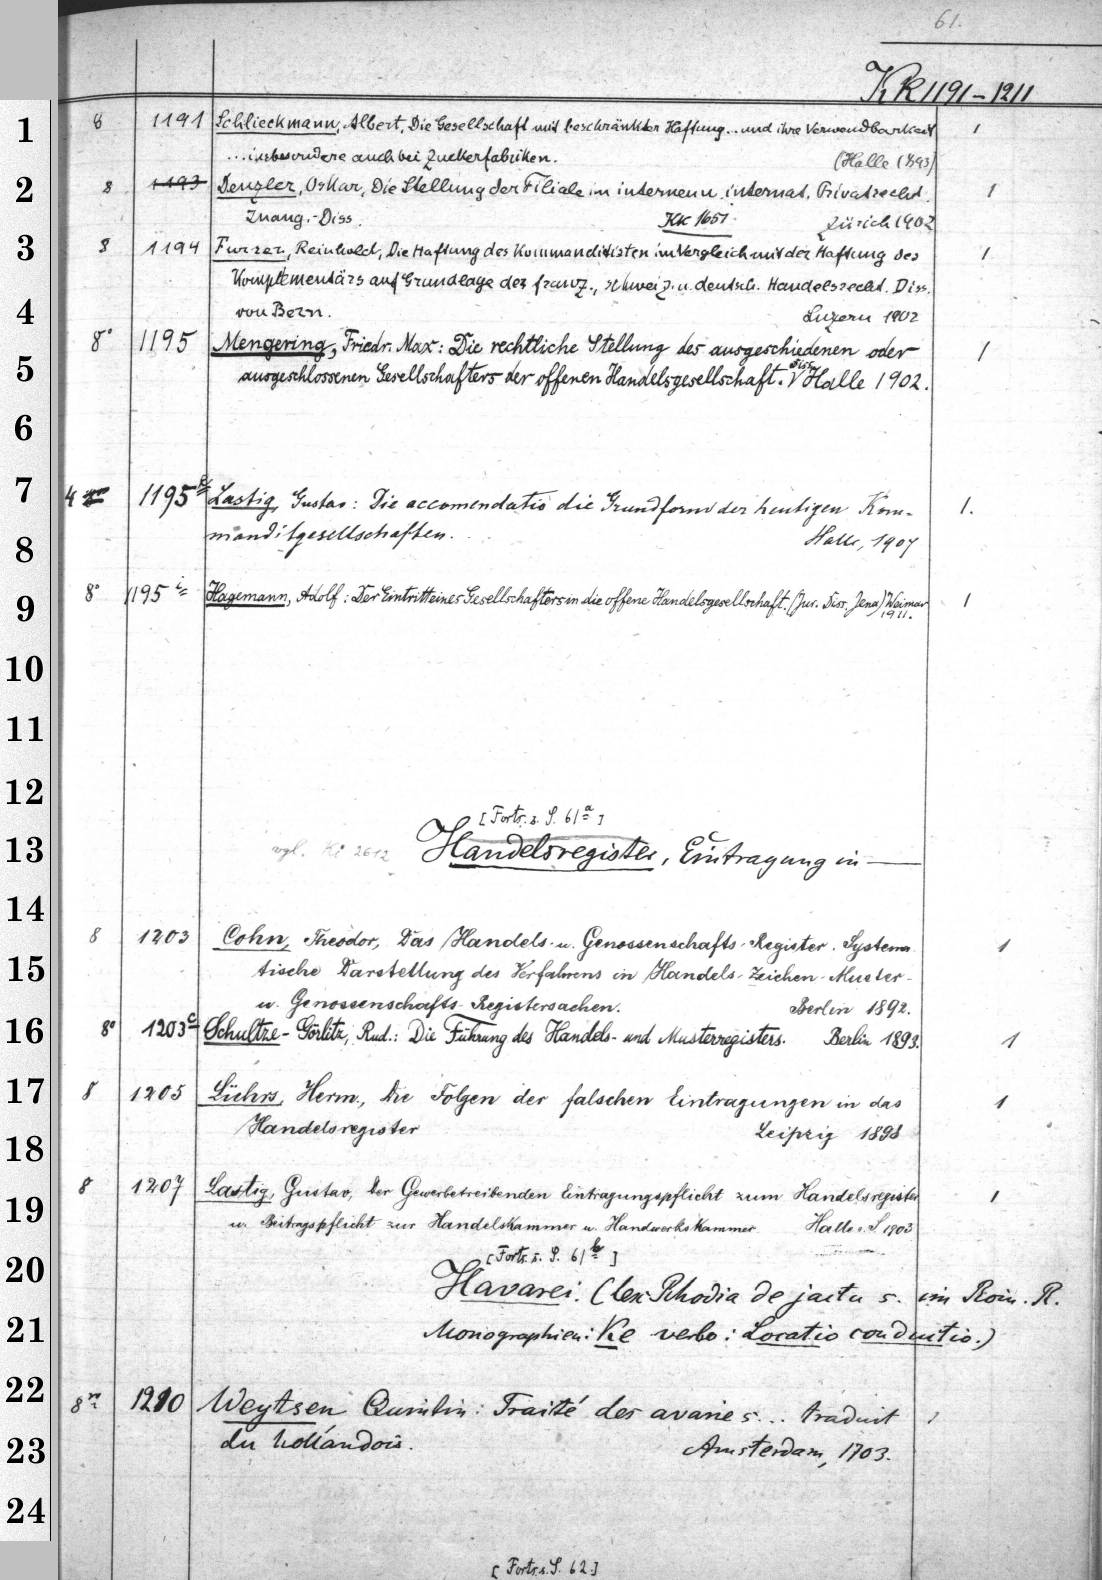 61.
KK 1191-1211
1
8 1191 Schlieckmann, Albert, Die Gesellschaft mit beschränkter Haftung... und ihre Verwendbarkeit 1
... insbesondere auch bei Zuckerfabriken. (Halle 1893)
2
8 1193 Denzler, Oskar, Die Stellung der Filiale im internen u. internat. Privatrecht. 1
Inaug.-Diss. KK 1651. Zürich 1902
3
8 1194 Furrer, Reinhold, Die Haftung des Kommanditisten im Vergleich mit der Haftung des 1
Komplementärs auf Grundlage des franz., schweiz. u. deutsch. Handelsrecht. Diss.
4
von Bern. Luzern 1902
8° 1195 Mengering, Friedr. Max: Die rechtliche Stellung des ausgeschiedenen oder 1
5
ausgeschlossenen Gesellschafters der offenen Handelsgesellschaft. Diss. Halle 1902.
6
7
4 1195 Lastig, Gustav: Die accomendatio die Grundform der heutigen Kom- 1.
8
manditgesellschaften. Halle, 1907
9
8° 1195 i Hagemann, Adolf: Der Eintritt eines Gesellschafters in die offene Handelsgesellschaft. (Jur. Diss. Jena) Weimar 1
1911.
10
11
12
[Forts. s. S. 61a]
13
vgl. Ki 2612 Handelsregister, Eintragung in —
14
8 1203 Cohn, Theodor, Das Handels- u. Genossenschafts-Register. Systema- 1
15
tische Darstellung des Verfahrens in Handels-Zeichen-Muster-
u. Genossenschafts-Registersachen. Berlin 1892.
16
8° 1203c Schultze-Görlitz, Rud.: Die Führung des Handels- und Musterregisters. Berlin 1893. 1
17
8 1205 Lührs, Herm., Die Folgen der falschen Eintragungen in das 1
18
Handelsregister Leipzig 1898
19
8 1207 Lastig, Gustav, Der Gewerbetreibenden Eintragungspflicht zum Handelsregister 1
u. Beitragspflicht zur Handelskammer u. Handwerkskammer Halle a. S 1903
20
[Forts. s. S. 61b]
Havarei. (lex Rhodia de jactu s. im Röm. R.
21
Monographien: Ke verbo: Locatio conductio.)
22
8° 1210 Weytsen Quintin: Traité des avaries... traduit 1
23
du hollandois. Amsterdam, 1703.
24
[Forts. s. S. 62]